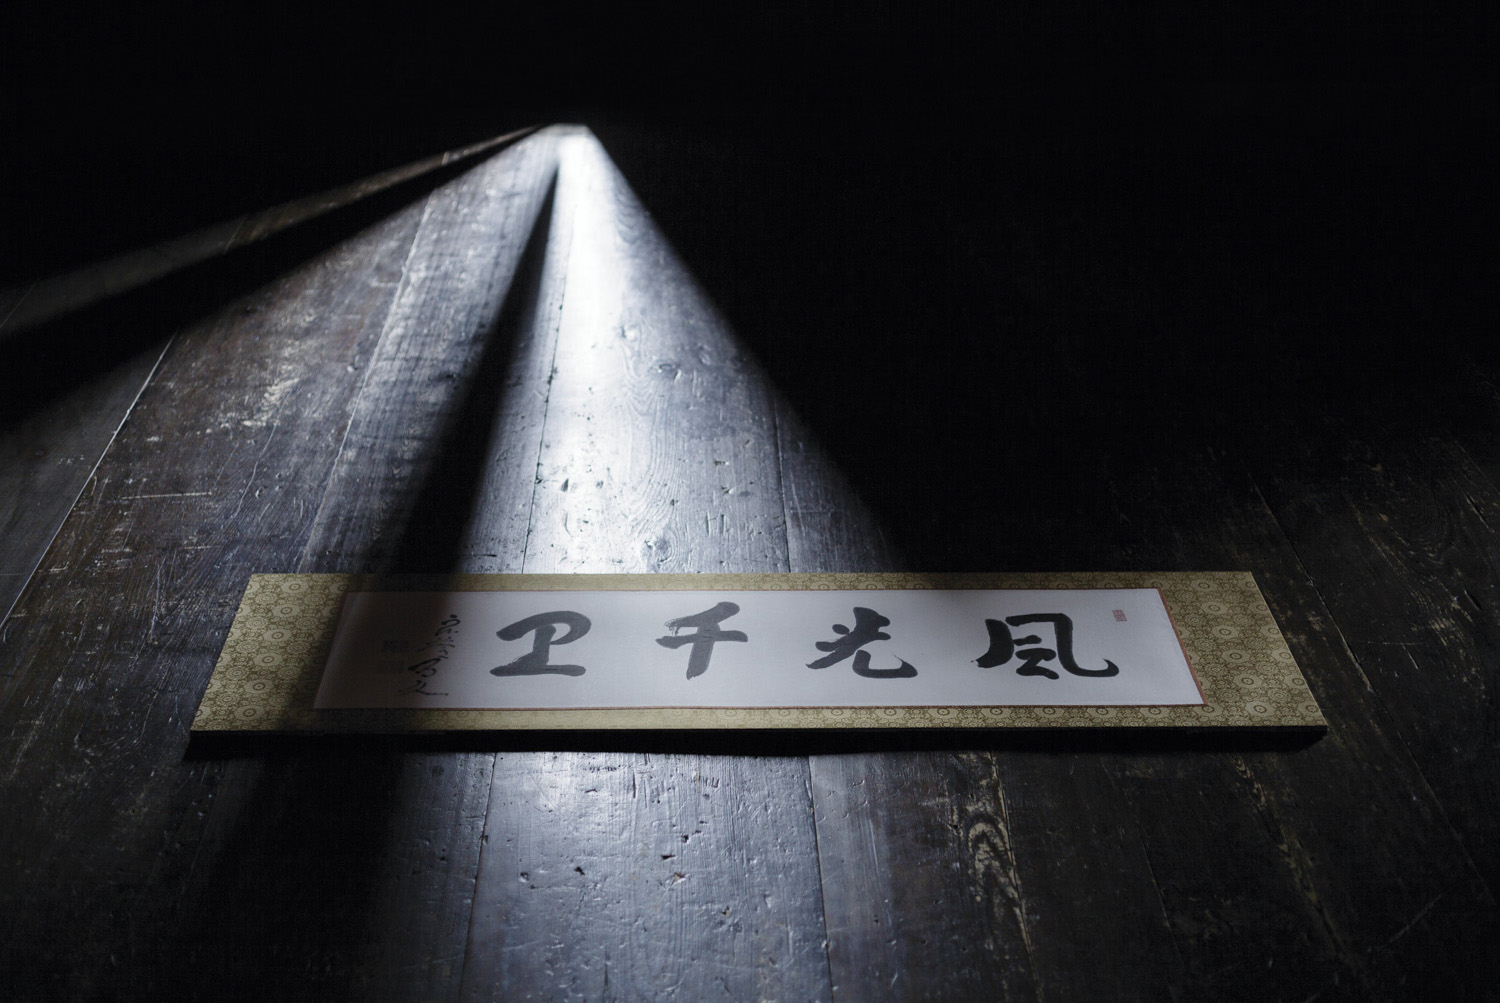 風光千里